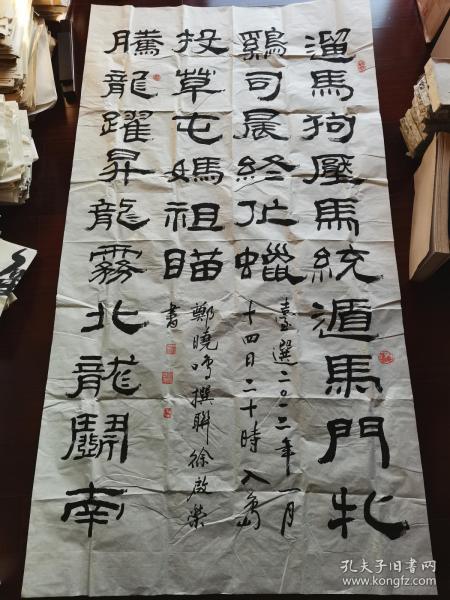 遛馬狗壓馬統遁馬門
鷄司晨終蠟
投草屯媽祖瞄
騰龍躍昇龍霧北龍鬭南
臺選二〇二二年一月
十四日二十時入島
鄭曉鳴撰聯徐啟榮
書
孔夫子旧书网
www.kongfz.com